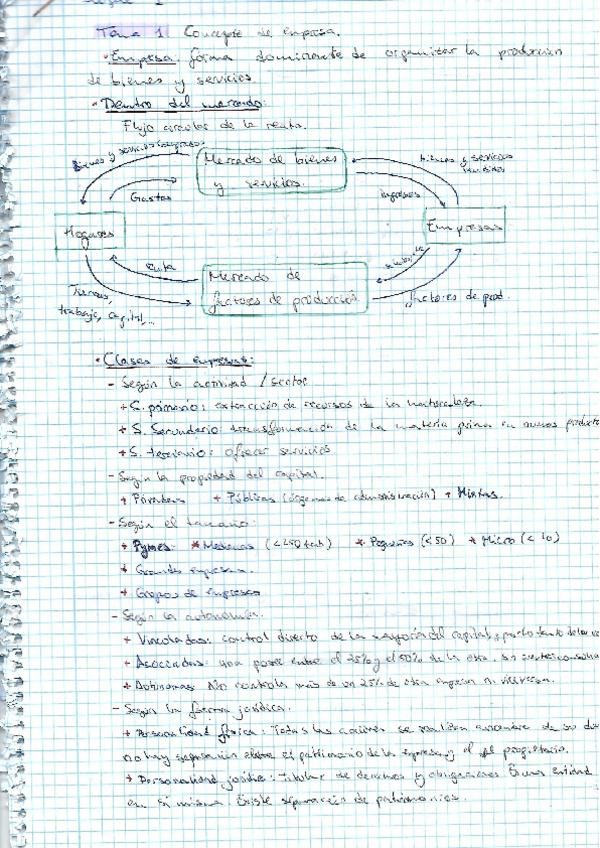 Tema 1: Concepto de empresa.
• Empresa: forma dominante de organizar la producción
de bienes y servicios.
• Dentro del mercado:
Flujo circular de la renta.
Bienes y servicios comprados
Mercado de bienes
y servicios.
bienes y servicios
vendidos
Gastos
Ingresos
Hogares
Empresas
Renta
Mercado de
factores de producción
Tierras,
trabajo, capital,...
factores de prod.
• Clases de empresas:
- Según la actividad / sector
+ S. primario: extracción de recursos de la naturaleza.
+ S. Secundario: transformación de la materia prima en nuevos producto
+ S. terciario: ofrecer servicios
- Según la propiedad del capital.
+ Privadas + Públicas (algún tipo de administración) + Mixtas.
- Según el tamaño:
+ Pymes: * Medianas (<250 trab) * Pequeñas (<50) * Micro (<10)
+ Grandes empresas.
+ Grupos de empresas
- Según la autonomía.
+ Vinculadas: control directo de la mayoría del capital, por lo tanto de los vo
+ Asociadas: una posee entre el 25% y el 50% de la otra.
+ Autónomas: No controla más de un 25% de otra empresa ni viceversa.
- Según la forma jurídica.
+ Personalidad física: Todas las acciones se realizan a nombre de su du
no hay separación entre el patrimonio de la empresa y el del propietario.
+ Personalidad jurídica: Titular de derechos y obligaciones. Es una entidad
en sí misma. Existe separación de patrimonios.